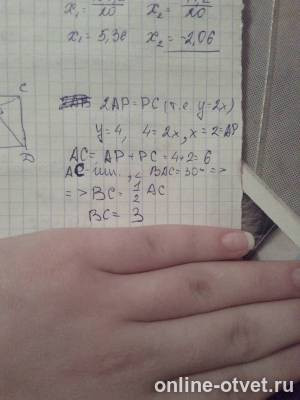 20 20
x₁ = 5,38 x₂ = -2,06
C
D
2AP = PC (т.е. y=2x)
y=4, 4=2x, x=2=AP
AC = AP + PC = 4+2=6
AC - гип., BAC = 30° =>
=> BC = 1/2 AC
BC = 3
online-otvet.ru